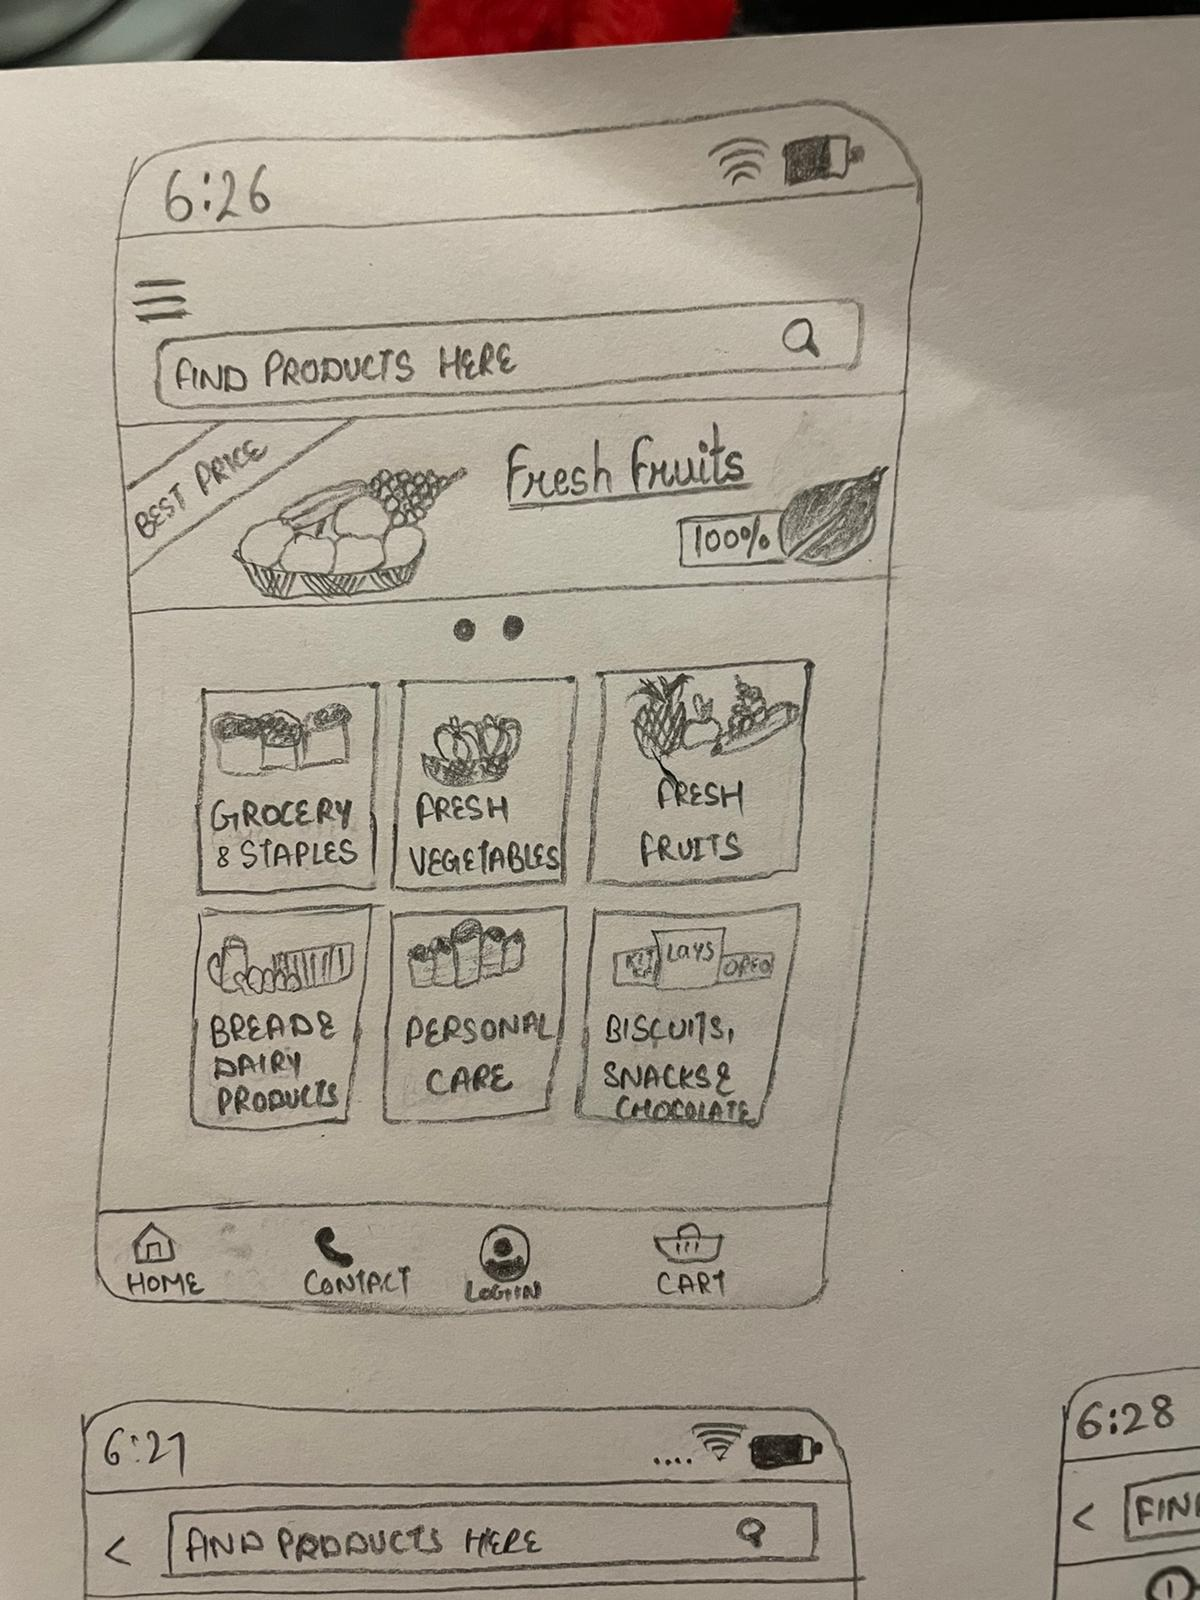 6:26
FIND PRODUCTS HERE
BEST PRICE
Fresh Fruits
100%
GROCERY
& STAPLES
FRESH
VEGETABLES
FRESH
FRUITS
BREAD &
DAIRY
PRODUCTS
PERSONAL
CARE
KIT
LAYS
OREO
BISCUITS,
SNACKS &
CHOCOLATE
HOME
CONTACT
LOGIIN
CART
6:27
<
FIND PRODUCTS HERE
6:28
<
FIN